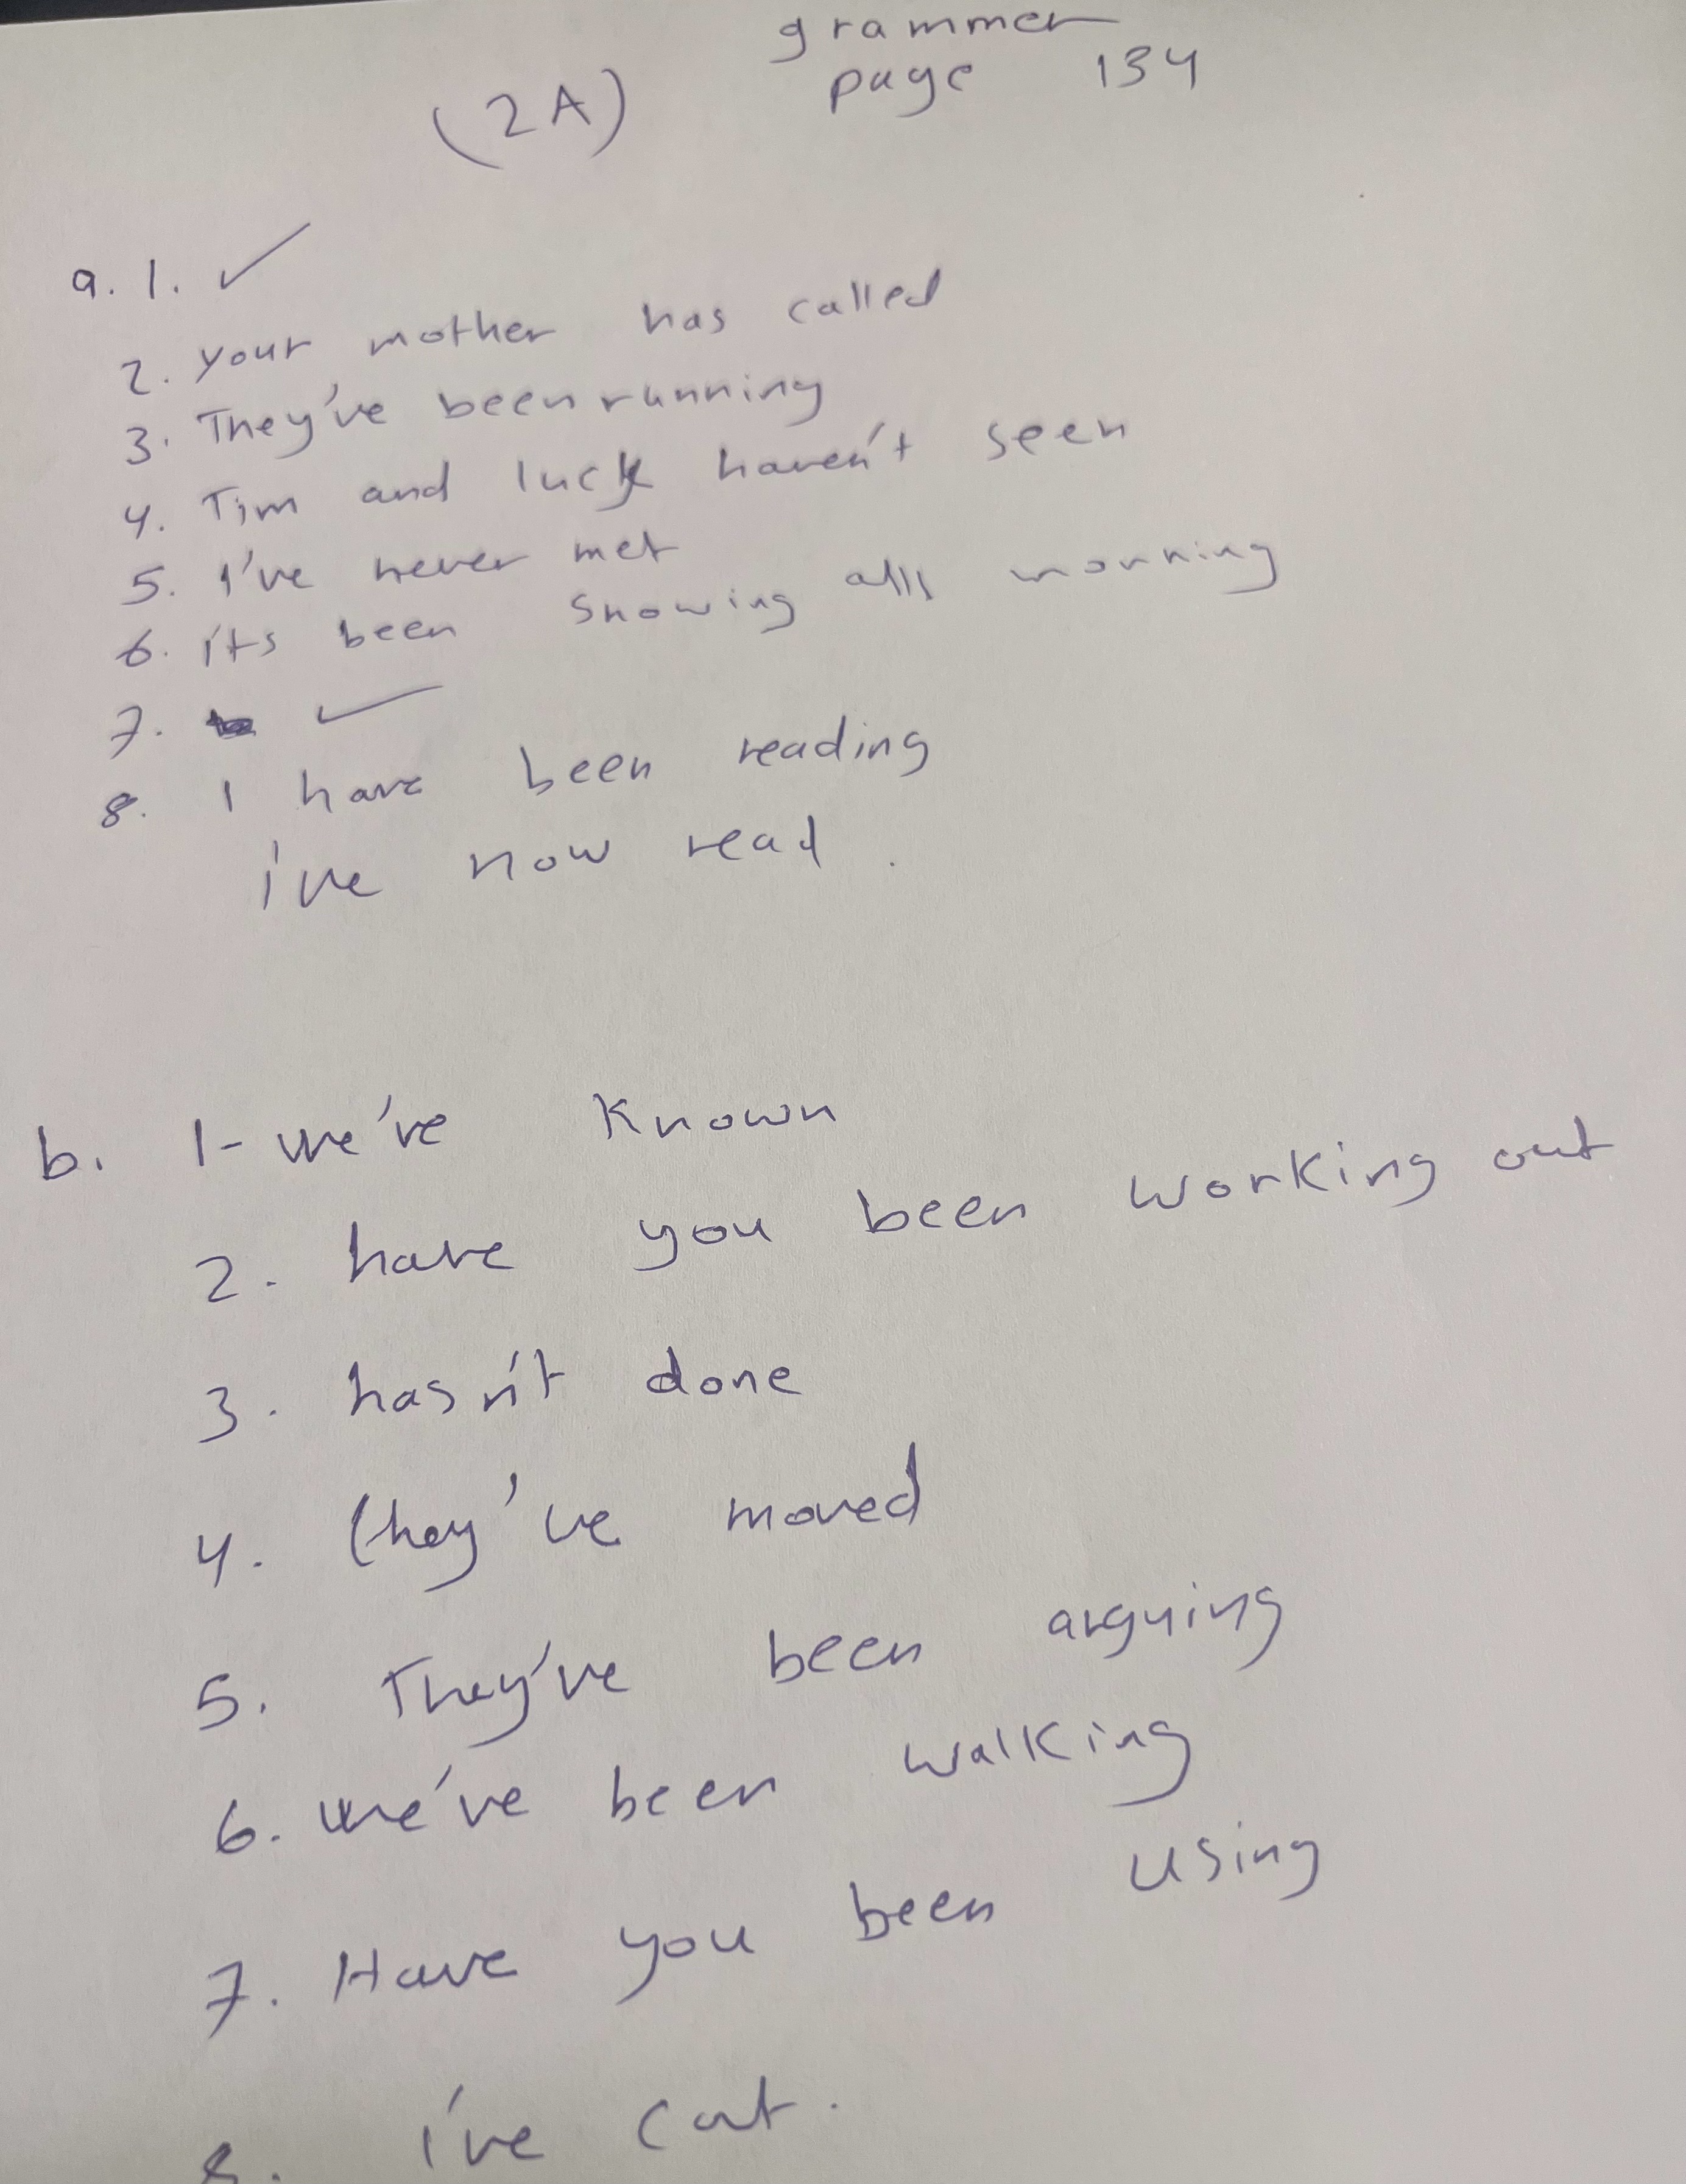 grammer
page 134
(2A)
a. 1. ✓
2. your mother has called
3. They've been running
4. Tim and luck haven't seen
5. I've never met
6. it's been snowing all morning
7. ✓
8. I have been reading
i've now read.
b. 1- we've known
2. have you been working out
3. hasn't done
4. they've moved
5. They've been arguing
6. we've been walking
7. Have you been using
8. i've cut.